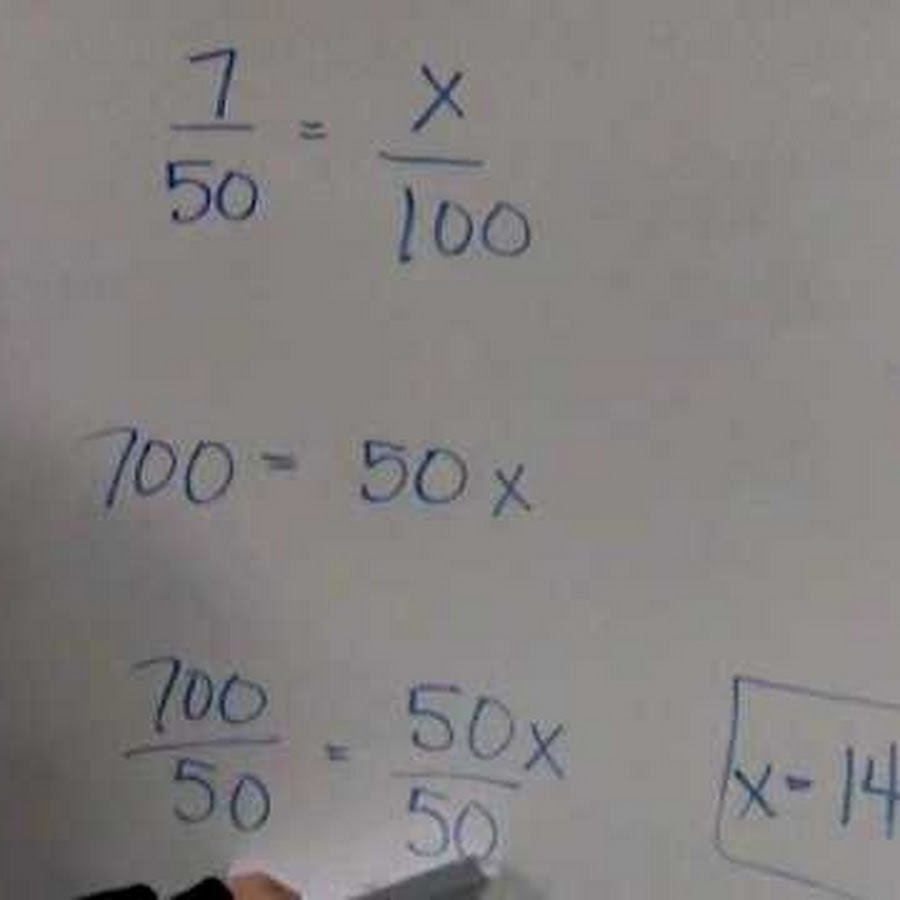 7/50 = x/100
700 = 50x
700/50 = 50x/50
x = 14